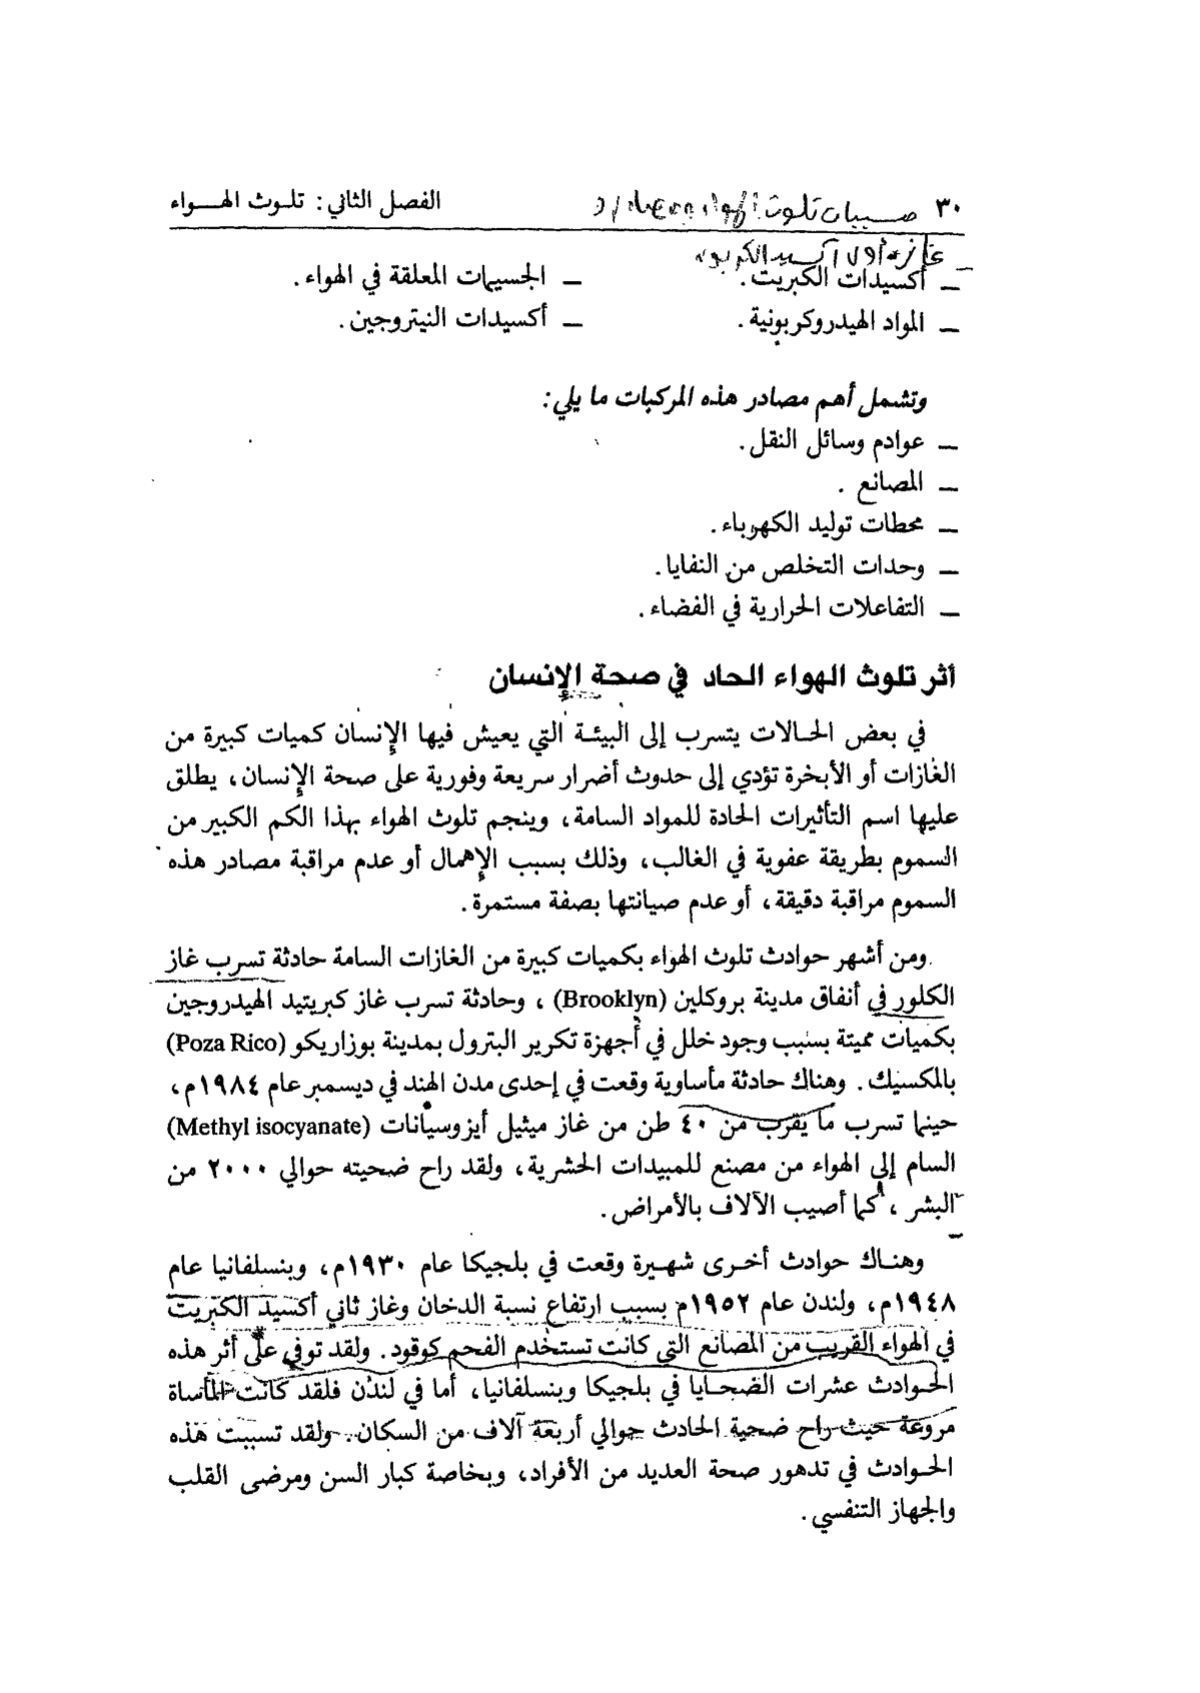 ٣٠ مسببات تلوث الهواء الفصل الثاني : تلوث الهـــواء
غاز أول أكسيد الكربون
ــ أكسيدات الكبريت . ــ الجسيمات المعلقة في الهواء .
ــ المواد الهيدروكربونية . ــ أكسيدات النيتروجين .
وتشمل أهم مصادر هذه المركبات ما يلي :
ــ عوادم وسائل النقل .
ــ المصانع .
ــ محطات توليد الكهرباء .
ــ وحدات التخلص من النفايا .
ــ التفاعلات الحرارية في الفضاء .
أثر تلوث الهواء الحاد في صحة الإنسان
في بعض الحـالات يتسرب إلى البيئـة التي يعيش فيها الإنسان كميات كبيرة من
الغازات أو الأبخرة تؤدي إلى حدوث أضرار سريعة وفورية على صحة الإنسان ، يطلق
عليها اسم التأثيرات الحادة للمواد السامة ، وينجم تلوث الهواء بهذا الكم الكبير من
السموم بطريقة عفوية في الغالب ، وذلك بسبب الإهمال أو عدم مراقبة مصادر هذه
السموم مراقبة دقيقة ، أو عدم صيانتها بصفة مستمرة .
ومن أشهر حوادث تلوث الهواء بكميات كبيرة من الغازات السامة حادثة تسرب غاز
الكلور في أنفاق مدينة بروكلين (Brooklyn) ، وحادثة تسرب غاز كبريتيد الهيدروجين
بكميات مميتة بسبب وجود خلل في أجهزة تكرير البترول بمدينة بوزاريكو (Poza Rico)
بالمكسيك . وهناك حادثة مأساوية وقعت في إحدى مدن الهند في ديسمبر عام ١٩٨٤م ،
حينما تسرب ما يقرب من ٤٠ طن من غاز ميثيل أيزوسيانات (Methyl isocyanate)
السام إلى الهواء من مصنع للمبيدات الحشرية ، ولقد راح ضحيته حوالي ٢٠٠٠ من
البشر ، كما أصيب الآلاف بالأمراض .
وهنـاك حوادث أخـرى شهـيرة وقعت في بلجيكا عام ١٩٣٠م ، وبنسلفانيا عام
١٩٤٨م ، ولندن عام ١٩٥٢م بسبب ارتفاع نسبة الدخان وغاز ثاني أكسيد الكبريت
في الهواء القريب من المصانع التي كانت تستخدم الفحم كوقود . ولقد توفي على أثر هذه
الحـوادث عشرات الضحـايا في بلجيكا وبنسلفانيا ، أما في لندن فلقد كانت المأساة
مروعة حيث راح ضحية الحادث حوالي أربعة آلاف من السكان . ولقد تسببت هذه
الحـوادث في تدهور صحة العديد من الأفراد ، وبخاصة كبار السن ومرضى القلب
والجهاز التنفسي .